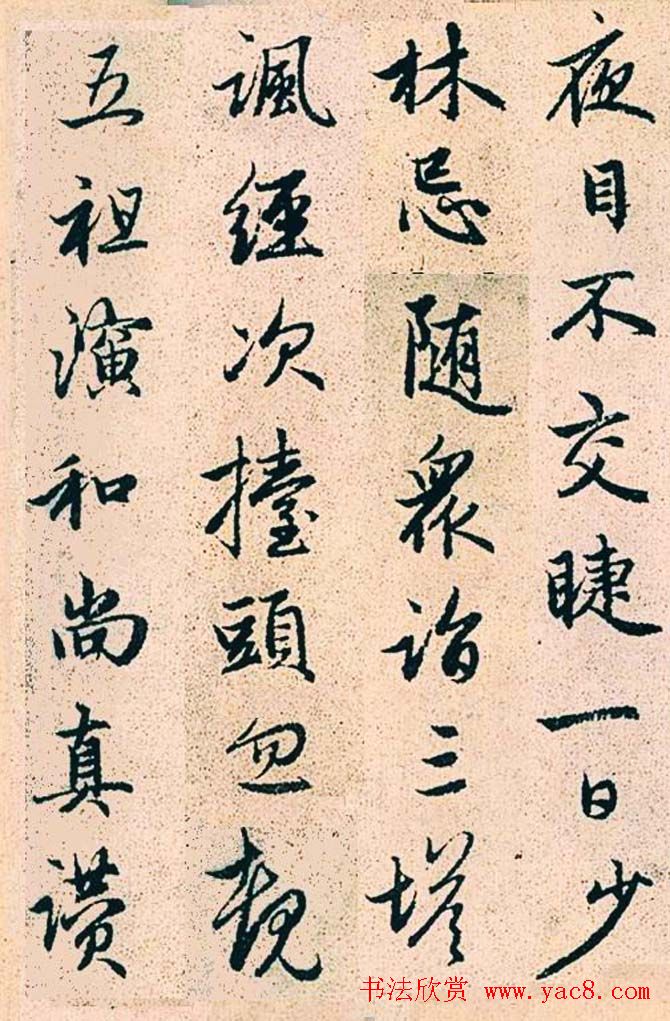 夜目不交睫一日少
林忌随衆詣三塔
諷經次擡頭忽覩
五祖演和尚真讚
书法欣赏 www.yac8.com